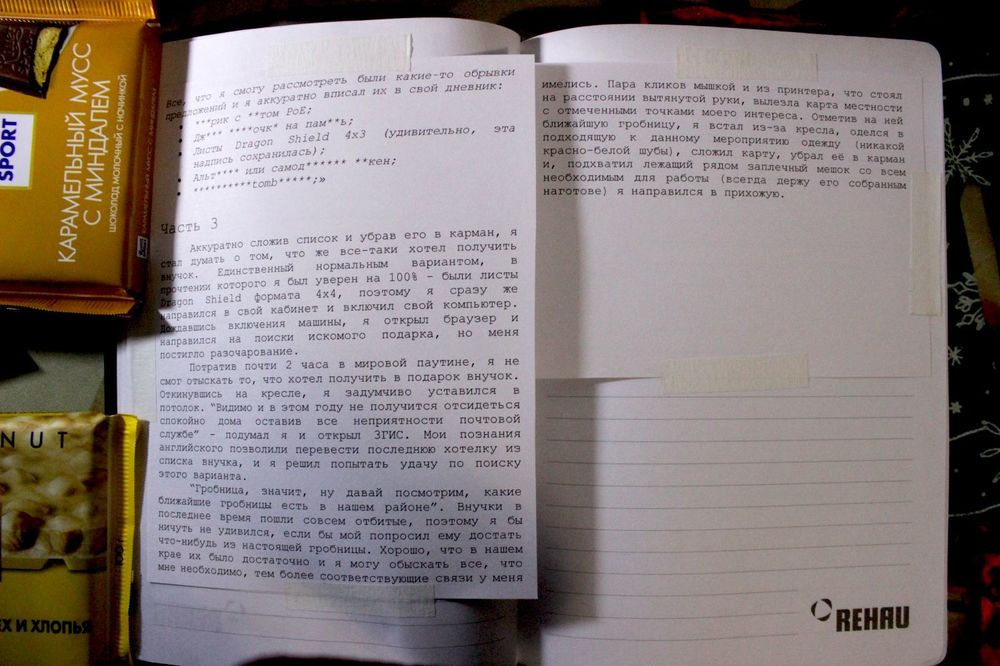 SPORT
КАРАМЕЛЬНЫЙ МУСС
С МИНДАЛЕМ
ШОКОЛАД МОЛОЧНЫЙ С НАЧИНКОЙ
NUT
ЕХ И ХЛОПЬЯ
Все, что я смогу рассмотреть были какие-то обрывки
предложений и я аккуратно вписал их в свой дневник:
• ***рик с **том PoE;
• Дж*** ****очк* на пам**ь;
• Листы Dragon Shield 4x3 (удивительно, эта
надпись сохранилась);
• Альт**** или самод****** **кен;
• **********tomb*****;»
Часть 3
Аккуратно сложив список и убрав его в карман, я
стал думать о том, что же все-таки хотел получить
внучок. Единственный нормальным вариантом, в
прочтении которого я был уверен на 100% – были листы
Dragon Shield формата 4x4, поэтому я сразу же
направился в свой кабинет и включил свой компьютер.
Дождавшись включения машины, я открыл браузер и
направился на поиски искомого подарка, но меня
постигло разочарование.
Потратив почти 2 часа в мировой паутине, я не
смог отыскать то, что хотел получить в подарок внучок.
Откинувшись на кресле, я задумчиво уставился в
потолок. “Видимо и в этом году не получится отсидеться
спокойно дома оставив все неприятности почтовой
службе” - подумал я и открыл ЗГИС. Мои познания
английского позволили перевести последнюю хотелку из
списка внучка, и я решил попытать удачу по поиску
этого варианта.
“Гробница, значит, ну давай посмотрим, какие
ближайшие гробницы есть в нашем районе”. Внучки в
последнее время пошли совсем отбитые, поэтому я бы
ничуть не удивился, если бы мой попросил ему достать
что-нибудь из настоящей гробницы. Хорошо, что в нашем
крае их было достаточно и я могу обыскать все, что
мне необходимо, тем более соответствующие связи у меня
имелись. Пара кликов мышкой и из принтера, что стоял
на расстоянии вытянутой руки, вылезла карта местности
с отмеченными точками моего интереса. Отметив на ней
ближайшую гробницу, я встал из-за кресла, оделся в
подходящую к данному мероприятию одежду (никакой
красно-белой шубы), сложил карту, убрал её в карман
и, подхватил лежащий рядом заплечный мешок со всем
необходимым для работы (всегда держу его собранным
наготове) я направился в прихожую.
REHAU